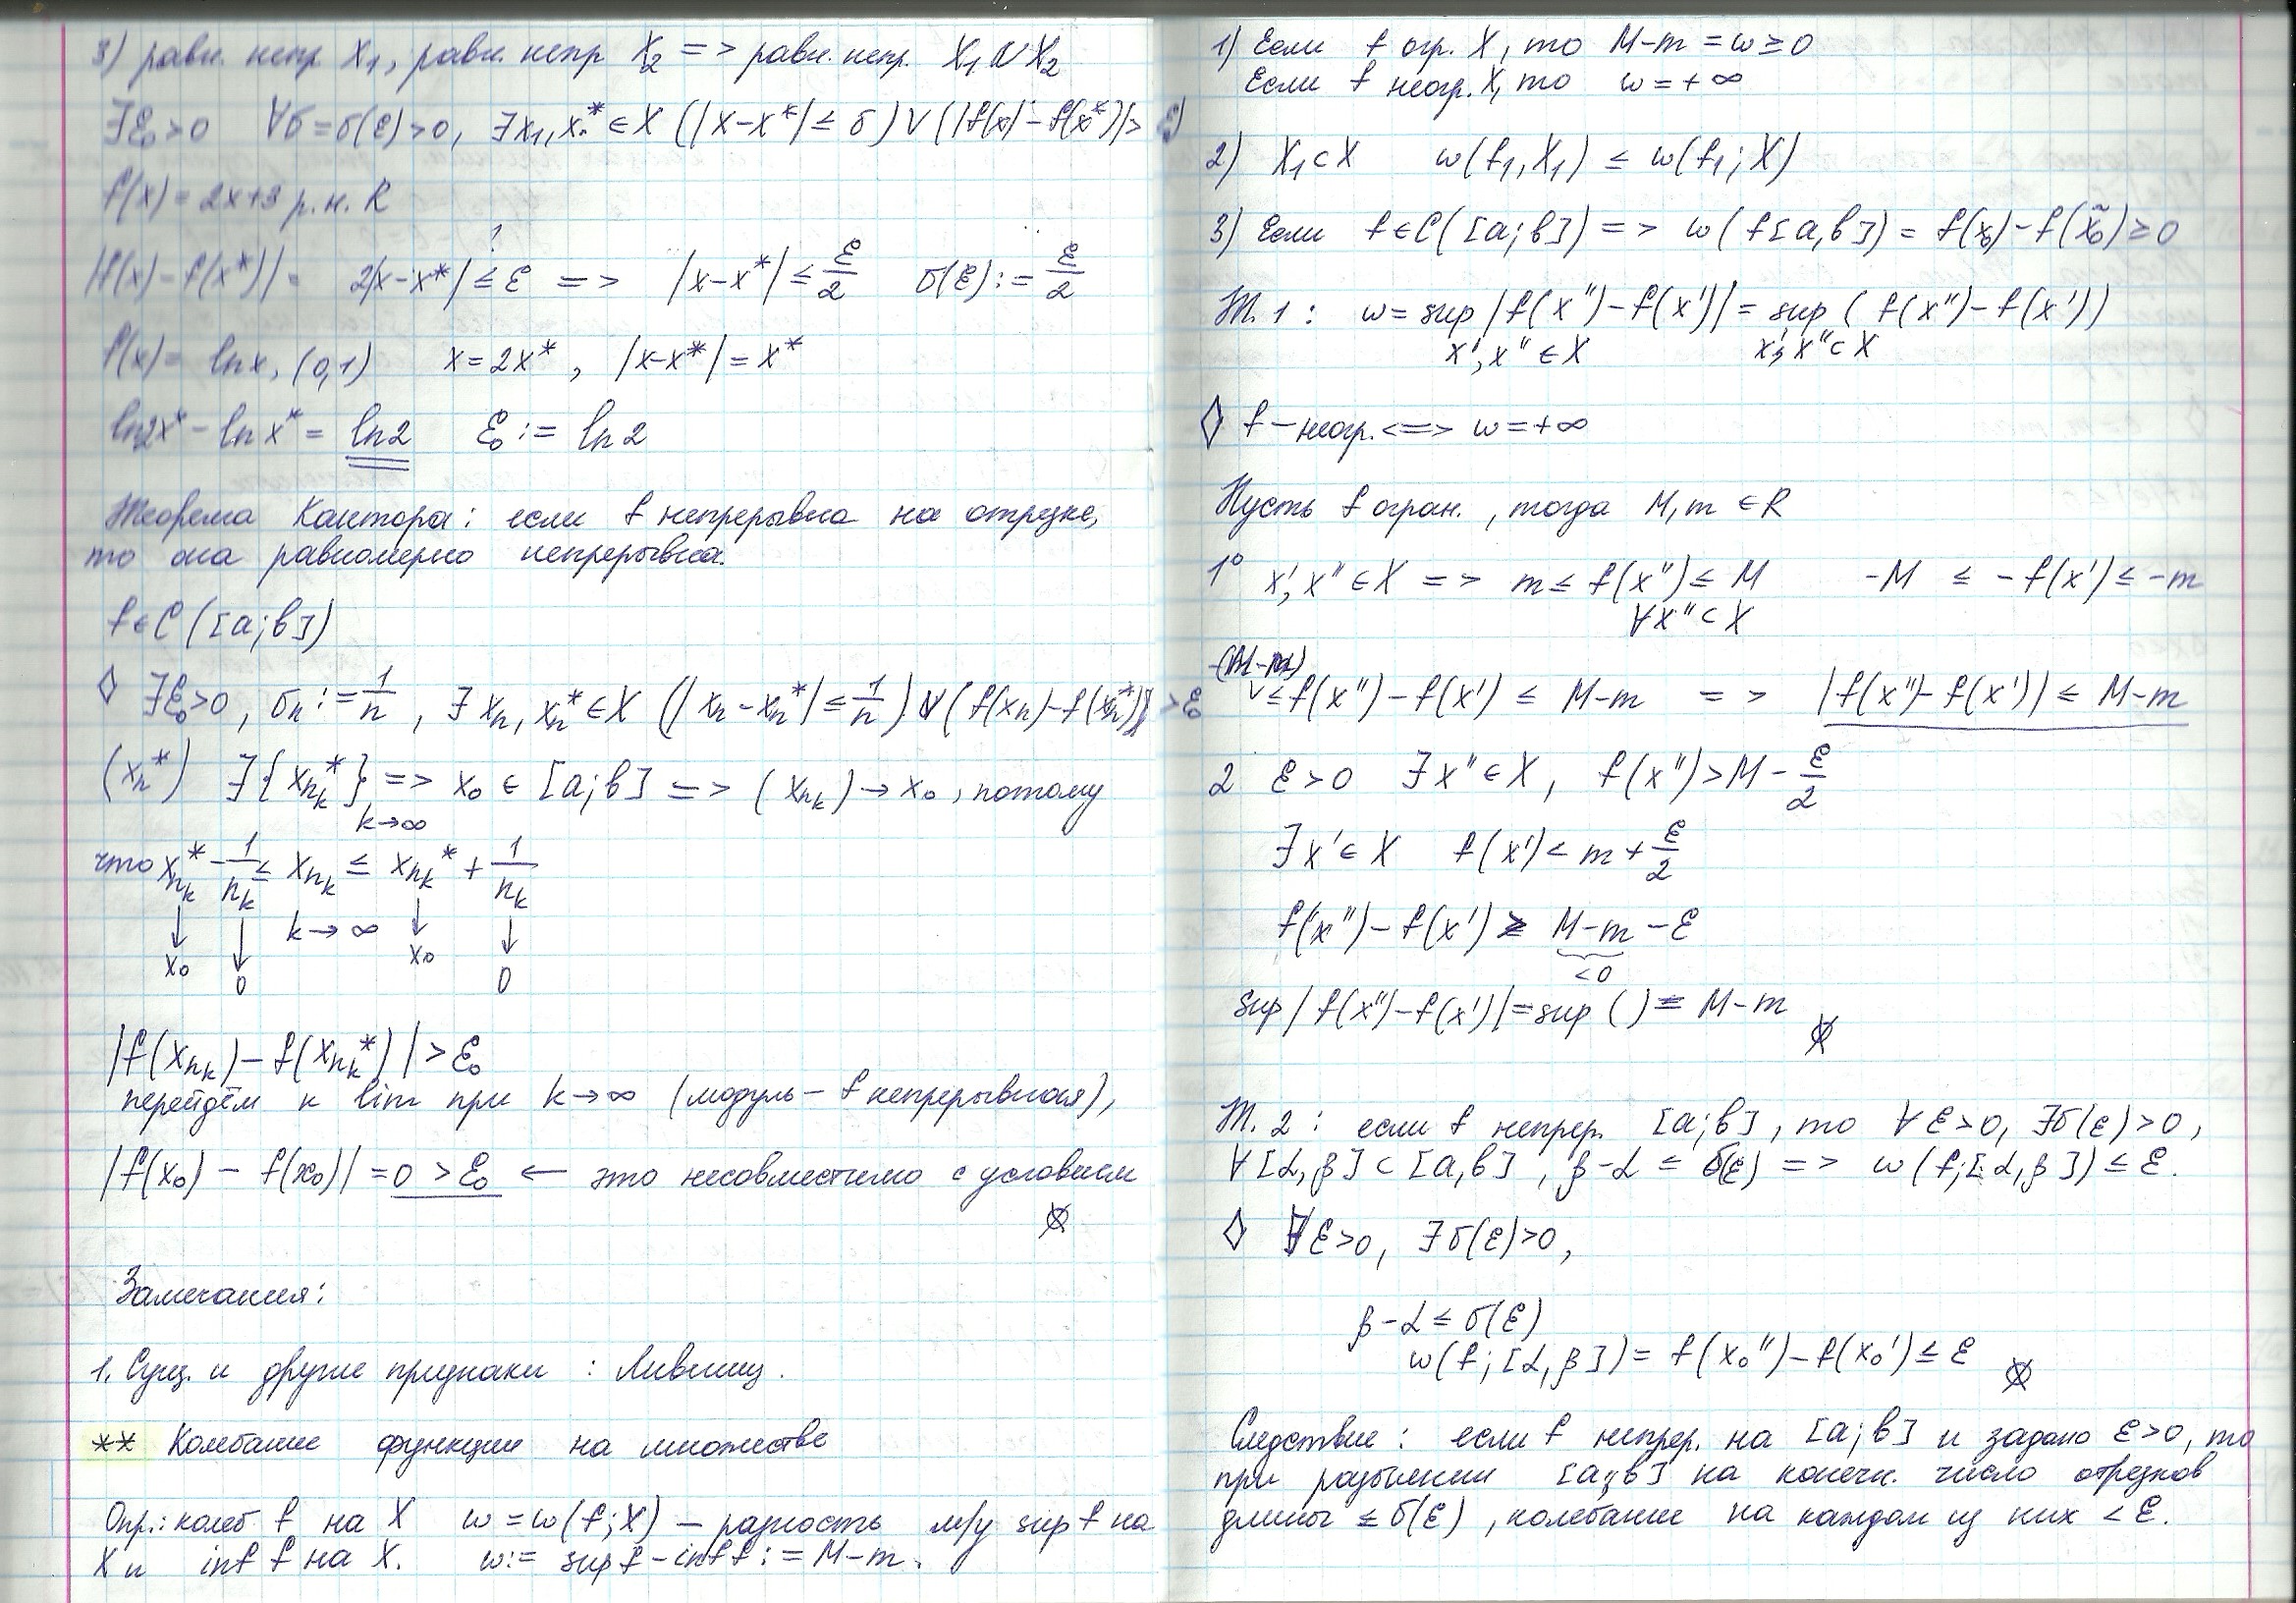 3) равн. непр X₁, равн. непр X₂ => равн. непр. X₁ ∪ X₂
∃ε₀>0 ∀б=б(ε)>0, ∃x₁,x₁* ∈ X (|x-x*| ≤ б) ∨ (|f(x)-f(x*)|> ε)
f(x) = 2x+3 р.н. R
|f(x)-f(x*)| = 2|x-x*| ≤ ε => |x-x*| ≤ ε/2 б(ε):= ε/2
f(x) = ln x, (0,1) x=2x*, |x-x*|=x*
ln2x* - ln x* = ln2 ε₀ := ln 2
Теорема Кантора: если f непрерывна на отрезке,
то она равномерно непрерывна.
f∈C([a;b])
◊ ∃ε₀>0, бn := 1/n, ∃ xn, xn* ∈ X (|xn-xn*| ≤ 1/n) ∨ (f(xn)-f(xn*)| > ε₀
(xn*) ∃{xnk*} => x₀ ∈ [a;b] => (xnk) → x₀, потому
k→∞
что xnk* - 1/nk ≤ xnk ≤ xnk* + 1/nk
↓ ↓ k→∞ ↓ ↓
x₀ 0 x₀ 0
|f(xnk) - f(xnk*)| > ε₀
перейдём к lim при k→∞ (модуль - f непрерывная),
|f(x₀) - f(x₀)| = 0 > ε₀ ← это несовместимо с условием
Замечания:
1. Сущ. и другие признаки : Лившиц.
** Колебание функции на множестве
Опр.: колеб f на X w = w(f;X) — разность м/у sup f на
X и inf f на X. w:= sup f - inf f := M-m.
1) Если f огр. X, то M-m = w ≥ 0
Если f неогр. X, то w = +∞
2) X₁⊂X w(f₁,X₁) ≤ w(f₁;X)
3) Если f∈C([a;b]) => w(f[a,b]) = f(x₀)-f(x̃₀) ≥ 0
Т. 1 : w = sup |f(x'')-f(x')| = sup (f(x'')-f(x'))
x',x'' ∈ X x',x'' ⊂ X
◊ f - неогр. <=> w = +∞
Пусть f огран., тогда M, m ∈ R
1° x', x'' ∈ X => m ≤ f(x'') ≤ M -M ≤ -f(x') ≤ -m
∀x'' ⊂ X
-(M-m)
∨ ≤ f(x'') - f(x') ≤ M-m => |f(x'')-f(x')| ≤ M-m
2 ε>0 ∃x''∈X, f(x'')>M - ε/2
∃x'∈X f(x') < m + ε/2
f(x'') - f(x') ≥ M-m - ε
<0
sup |f(x'')-f(x')| = sup ( ) = M-m
Т. 2 : если f непрер. [a;b], то ∀ε>0, ∃б(ε)>0,
∀[α,β]⊂[a,b], β-α ≤ б(ε) => w(f;[α,β]) ≤ ε.
◊ ∀ε>0, ∃б(ε)>0,
β-α ≤ б(ε)
w(f;[α,β]) = f(x₀'') - f(x₀') ≤ ε
Следствие: если f непрер. на [a;b] и задано ε>0, то
при разбиении [a;b] на конечн. число отрезков
длины ≤ б(ε), колебание на каждом из них < ε.